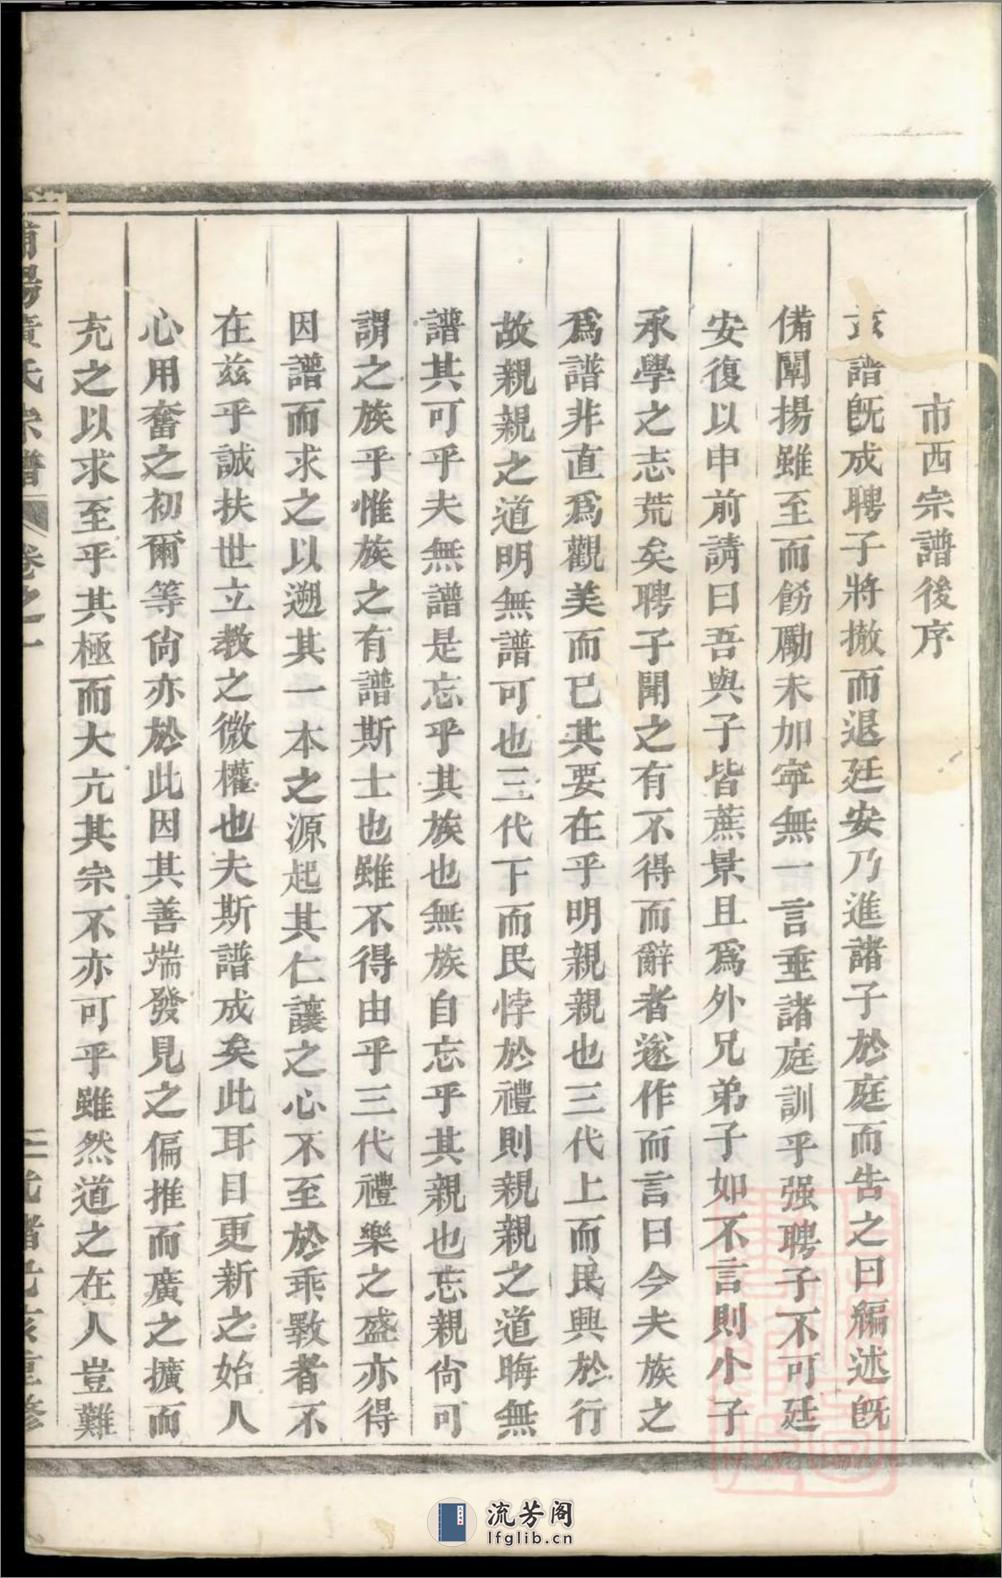 市西宗譜後序
茲譜旣成聘子將撤而退廷安乃進諸子於庭而告之曰編述旣
備闡揚雖至而飭勵未加寧無一言垂諸庭訓乎强聘子不可廷
安復以申前請曰吾與子皆蔗景且爲外兄弟子如不言則小子
承學之志荒矣聘子聞之有不得而辭者遂作而言曰今夫族之
爲譜非直爲觀美而已其要在乎明親親也三代上而民興於行
故親親之道明無譜可也三代下而民悖於禮則親親之道晦無
譜其可乎夫無譜是忘乎其族也無族自忘乎其親也忘親尙可
謂之族乎惟族之有譜斯士也雖不得由乎三代禮樂之盛亦得
因譜而求之以遡其一本之源起其仁讓之心不至於乖斁者不
在茲乎誠扶世立教之微權也夫斯譜成矣此耳目更新之始人
心用奮之初爾等尙亦於此因其善端發見之偏推而廣之擴而
充之以求至乎其極而大亢其宗不亦可乎雖然道之在人豈難
黃氏宗譜 卷之一 重修
流芳阁
lfglib.cn